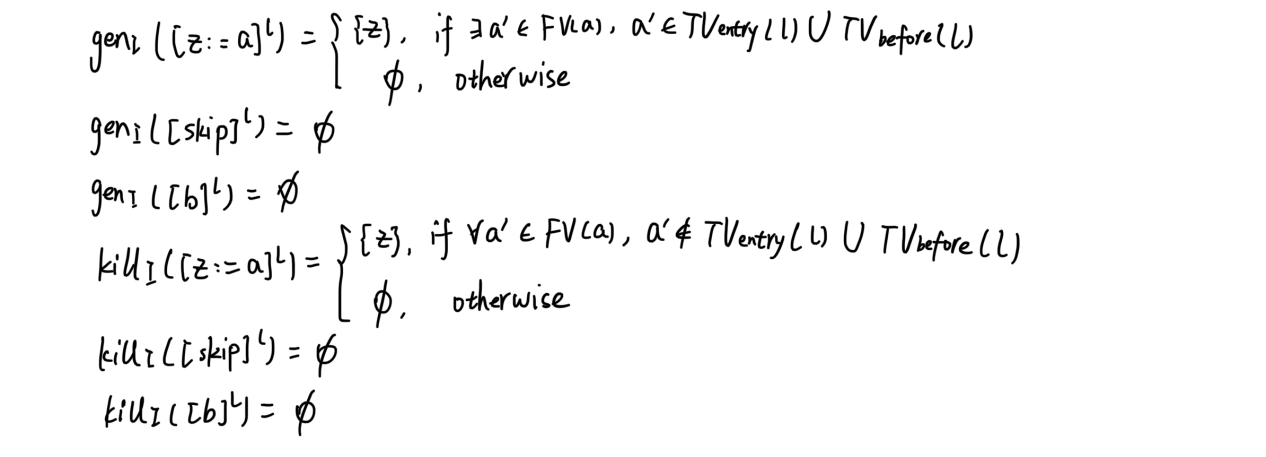 gen_I([z:=a]^l) = { {z}, if ∃a' ∈ FV(a), a' ∈ TV_entry(l) ∪ TV_before(l)
φ, otherwise
gen_I([skip]^l) = φ
gen_I([b]^l) = φ
kill_I([z:=a]^l) = { {z}, if ∀a' ∈ FV(a), a' ∉ TV_entry(l) ∪ TV_before(l)
φ, otherwise
kill_I([skip]^l) = φ
kill_I([b]^l) = φ